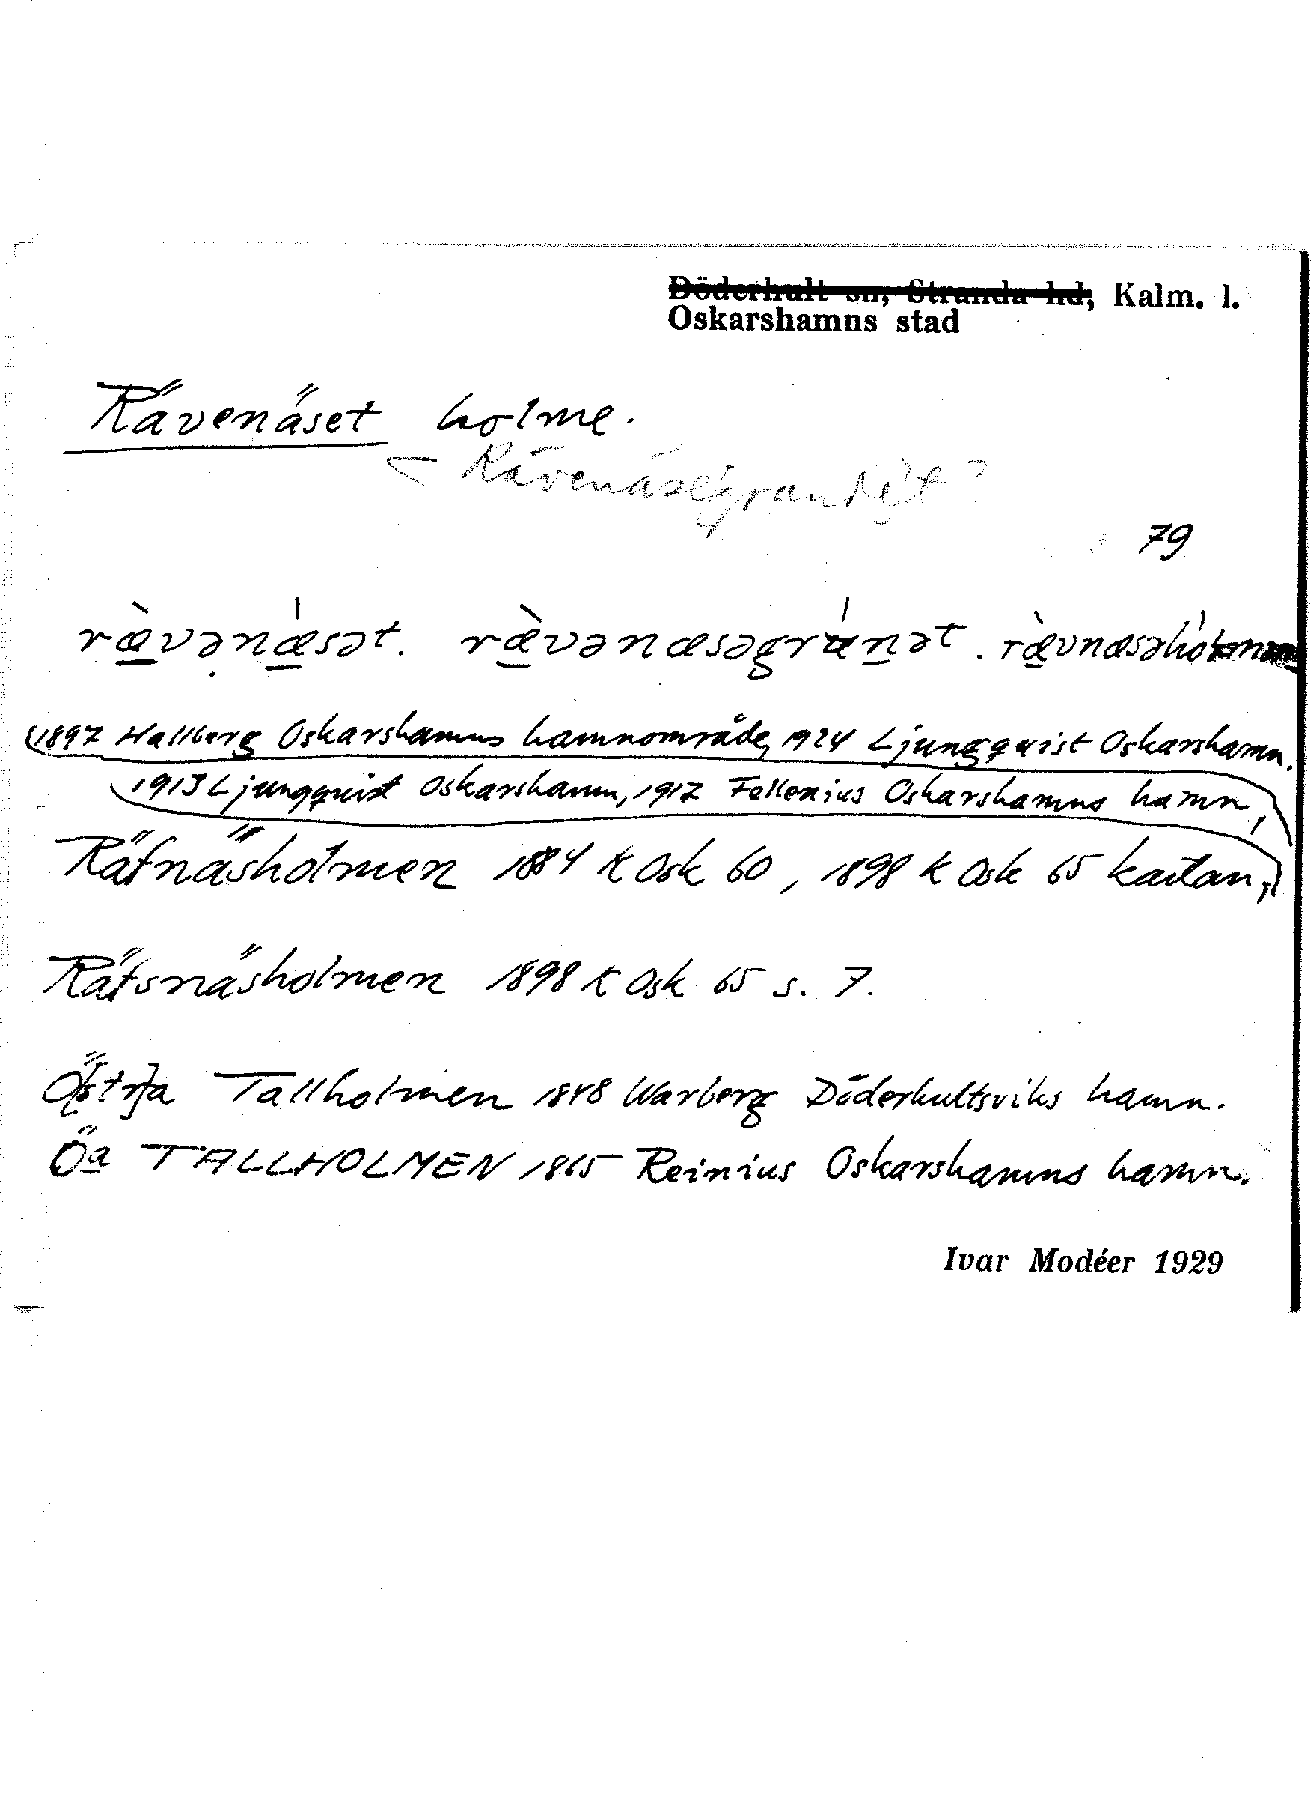 Döderhult sn, Stranda hd, Kalm. l.
Oskarshamns stad
Rävenäset holme.
< Rävenäsegrandet?
79
rævənæsət. rævənæsəgranət. rævnæsəhol
1897 Hallberg Oskarshamns hamnområde, 1924 Ljungquist Oskarshamn.
1913 Ljungquist Oskarshamn, 1917 Fellenius Oskarshamns hamn,
Räfnäsholmen 1884 K Osk 60, 1898 K Osk 65 kartan,
Räfsnäsholmen 1898 K Osk 65 s. 7.
Ö[st]r[a Tallholmen 1848 Warberg Döderhultsviks hamn.
Öa TALLHOLMEN 1865 Reinius Oskarshamns hamn.
Ivar Modéer 1929